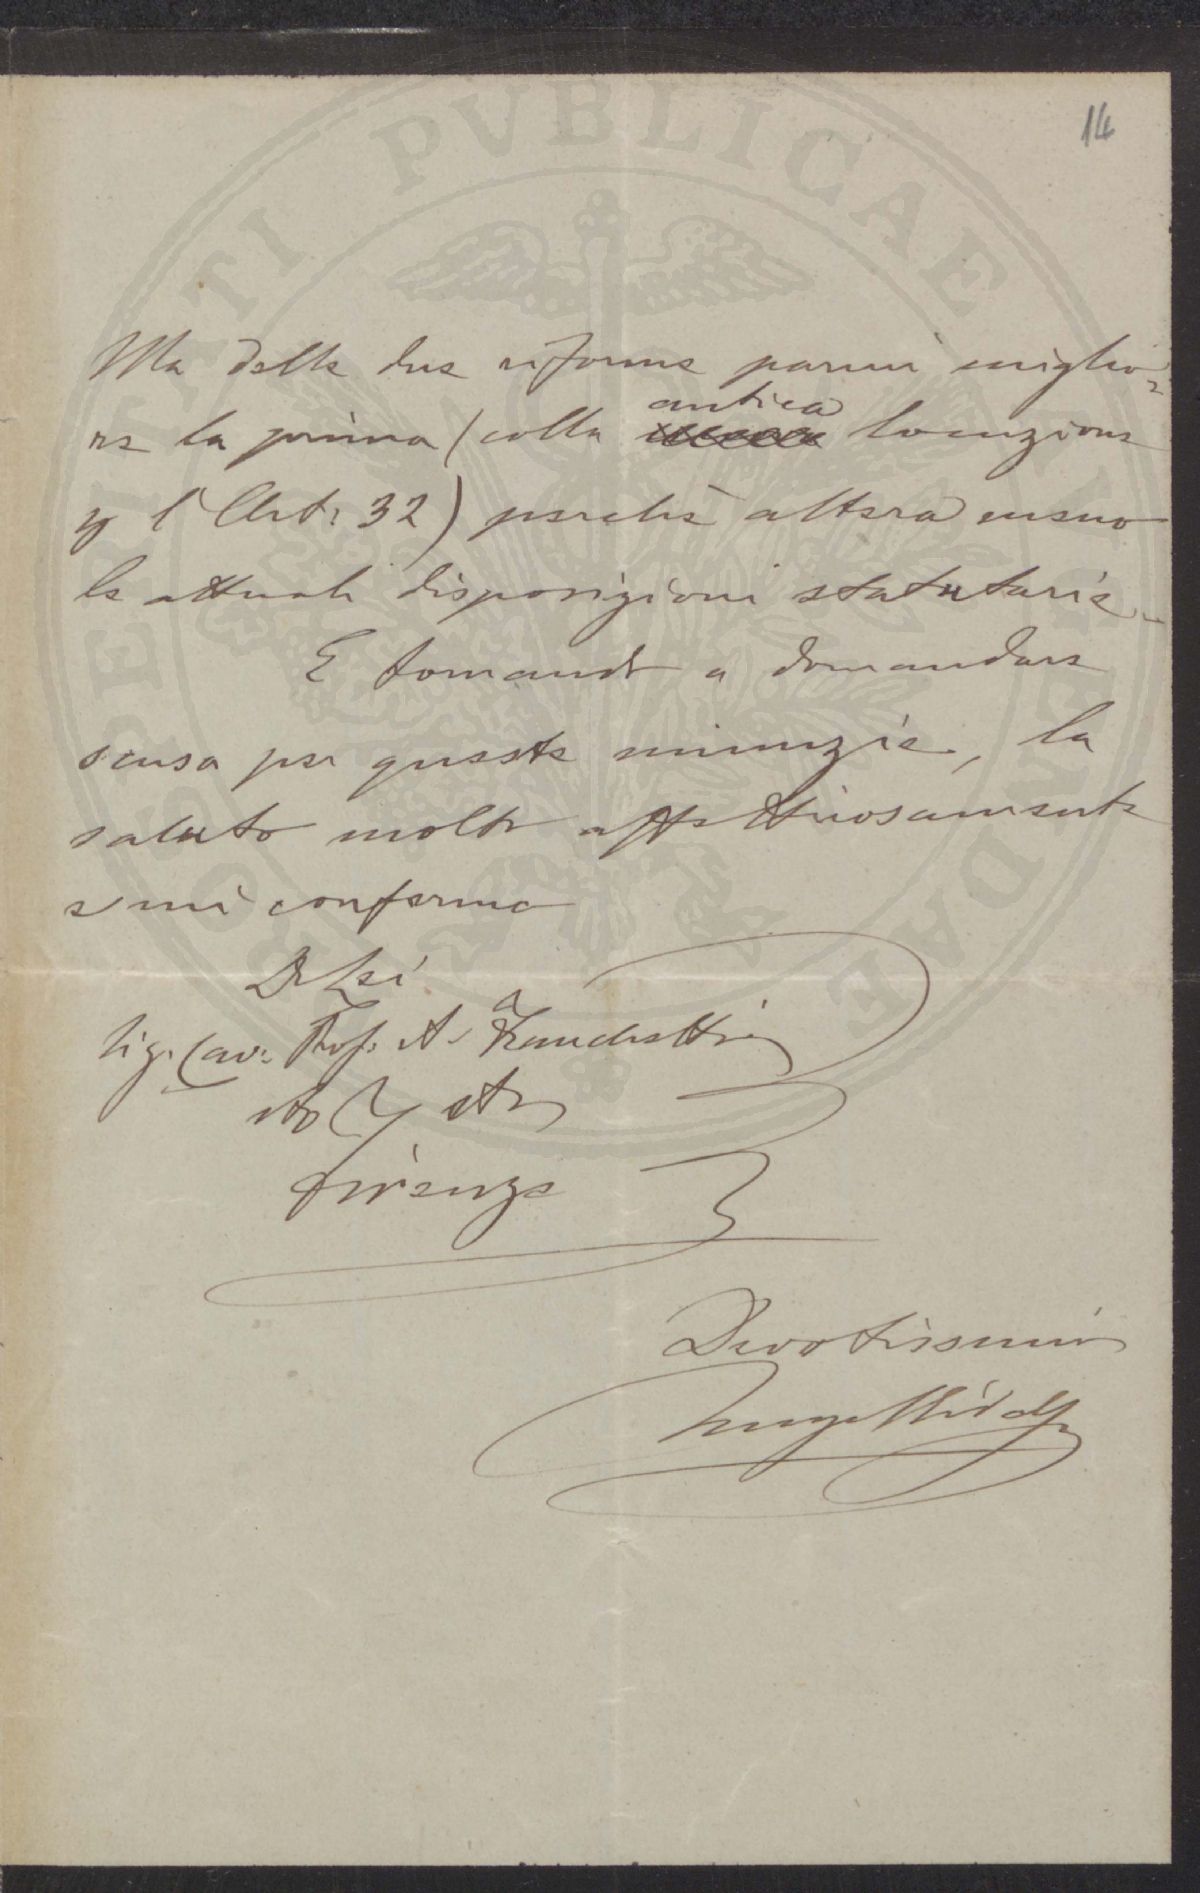 14
Ma delle due riforme parmi miglio=
re la prima (colla antica locuzione
p l'Art: 32) perchè altera meno
le attuali disposizioni statutarie.
E tornando a domandare
scusa per queste minuzie, la
saluto molto affettuosamente
e mi confermo
Di Lei
Sig. Cav: Prof. A. Franchetti
Firenze
Devotissimo
PROSPERITATI PVBLICAE AVGENDAE